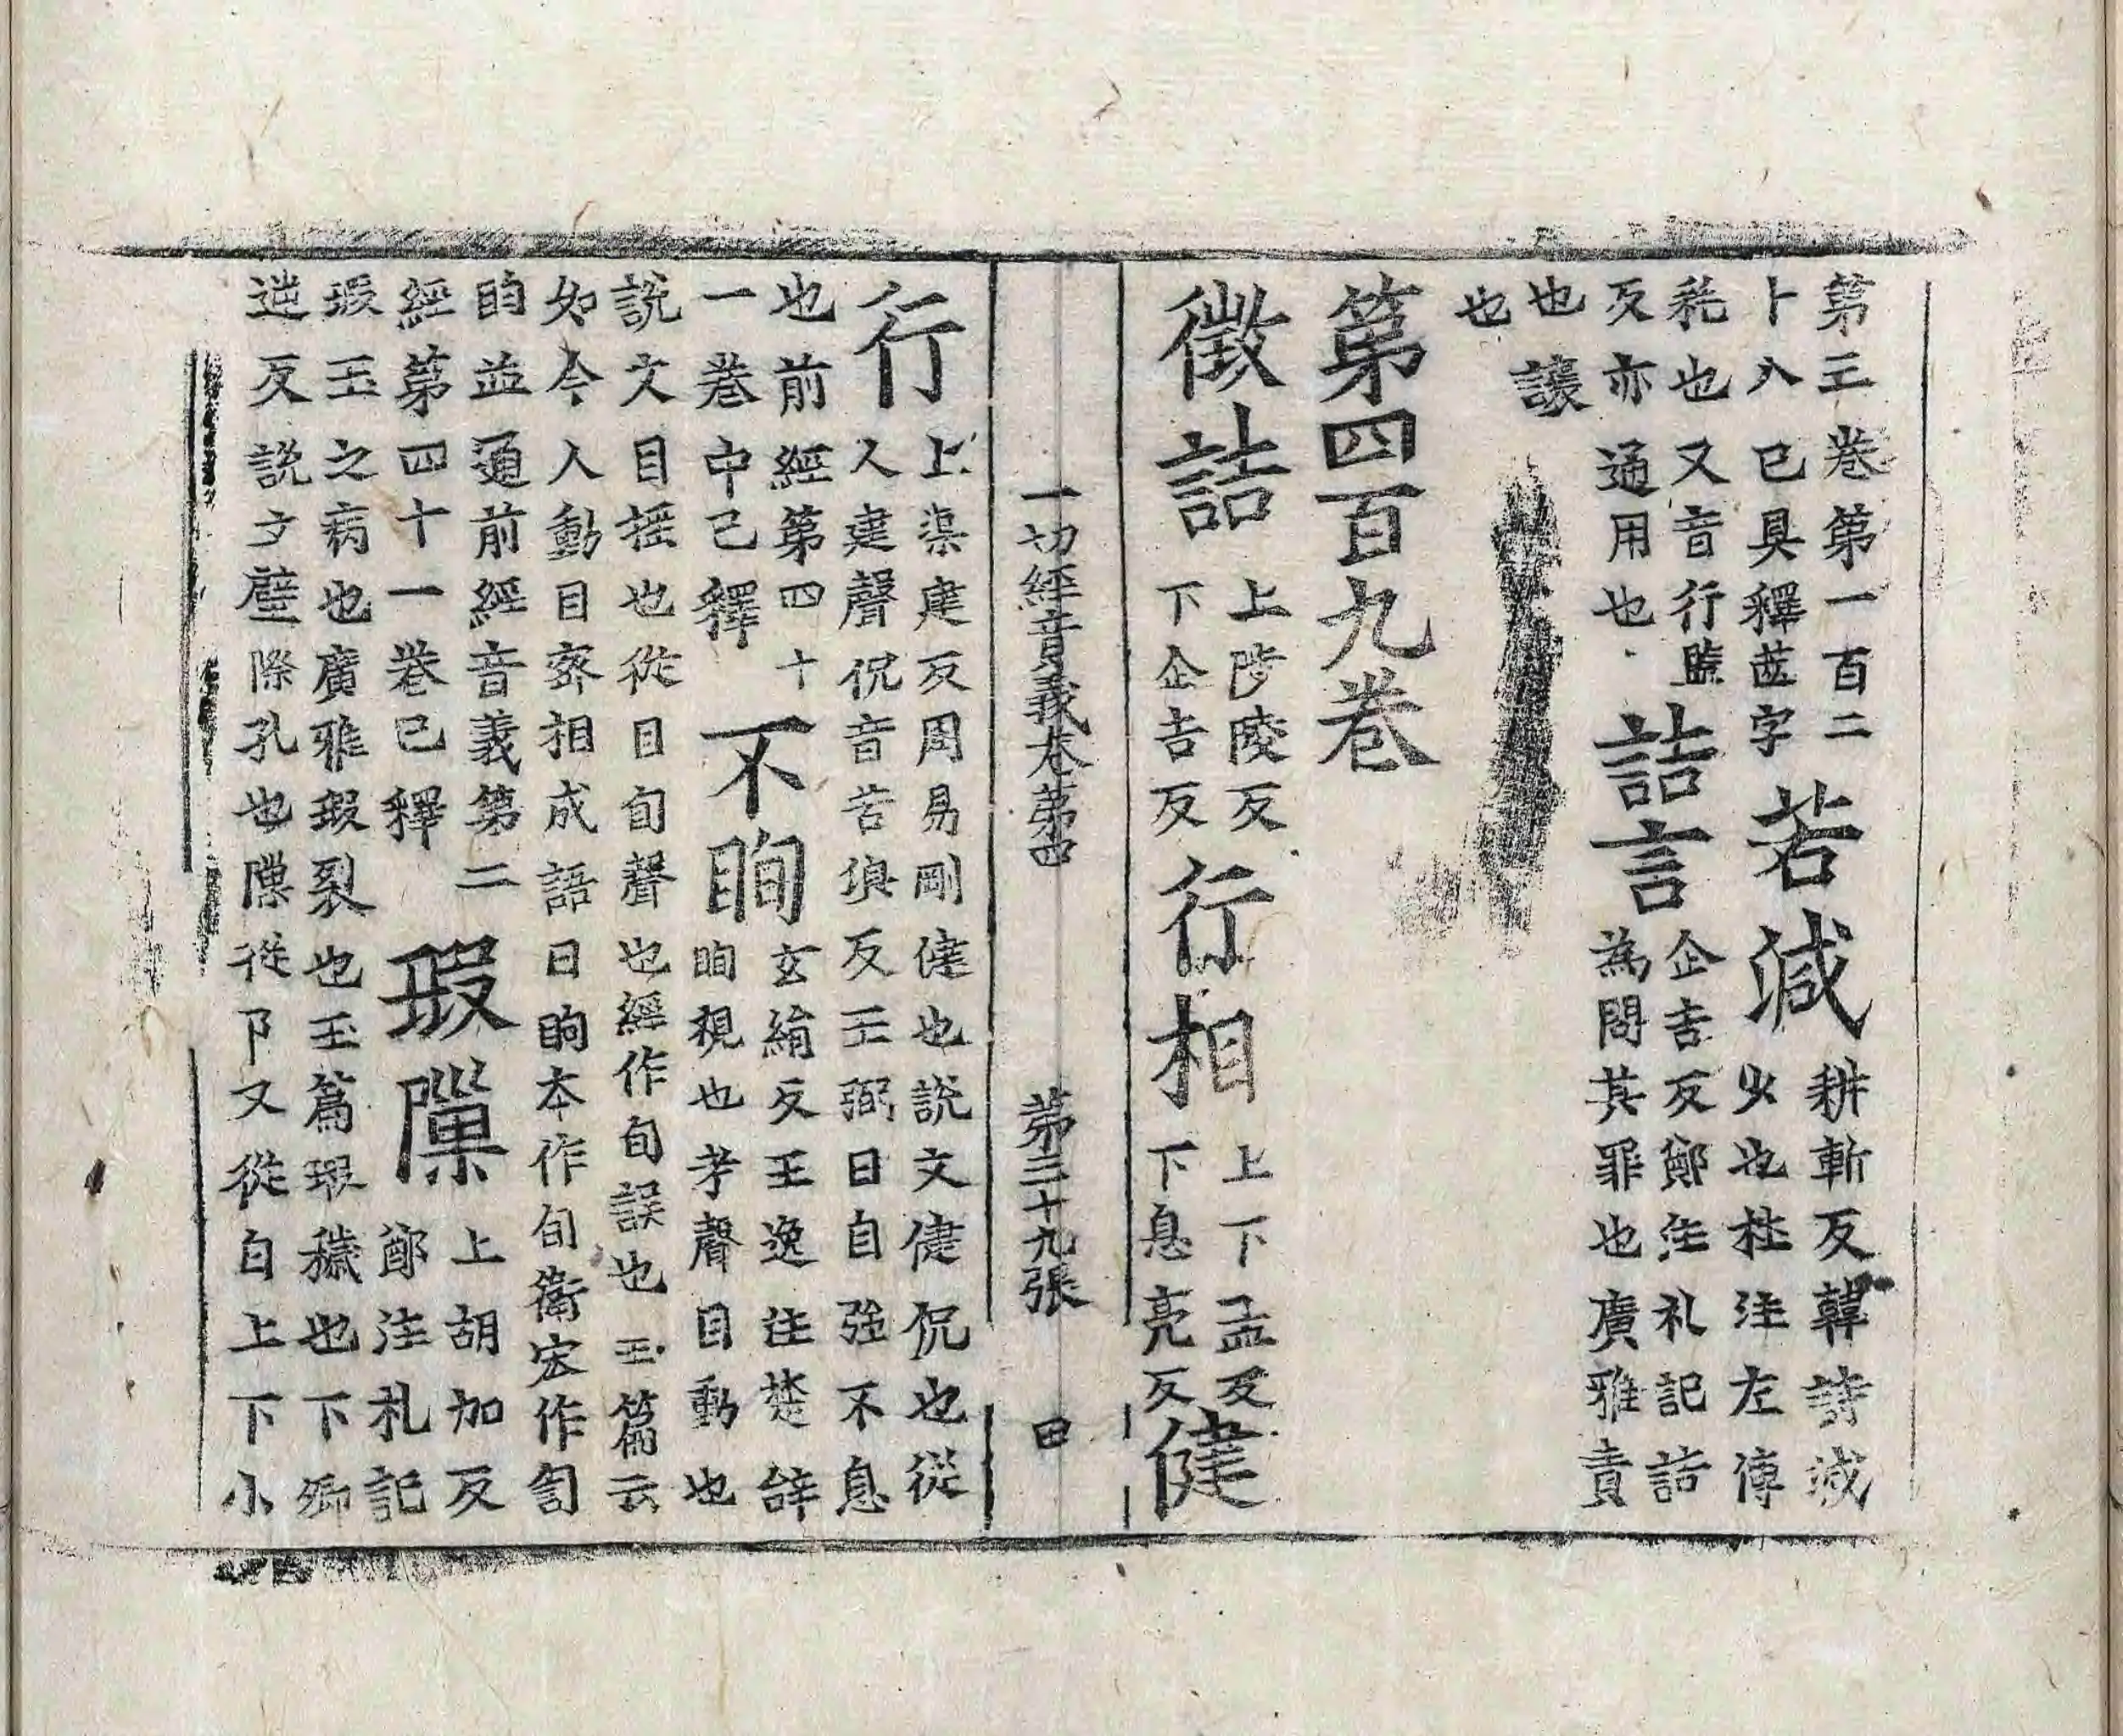 第三巻第一百二卜八已具釋莊字若減耕斬反韓詩減少也杜注左傳
秏也又音行監反亦通用也詰言企吉反鄭注礼記詰為問其罪也廣雅責
也讓也
第四百九巻
徵詰上陟陵反下企吉反行相上下孟反下息亮反健
一切經音義巻第四 第三十九張 田
行上渠建反周易剛健也說文健侃也從人建聲侃音苦浪反王弼曰自強不息
也前經第四十一巻中已釋不眴玄絹反王逸注楚辝眴視也考聲目動也
說文目揺也從目旬聲也經作旬誤也玉篇云如今人動目密相成語曰眴本作旬衛宏作訇
眴並通前經音義第二經第四十一巻已釋瑕隟上胡加反鄭注札記
瑕玉之病也廣雅瑕裂也玉篇瑕穢也下卿逆反說文壁際孔也隟從阝又從白上下小